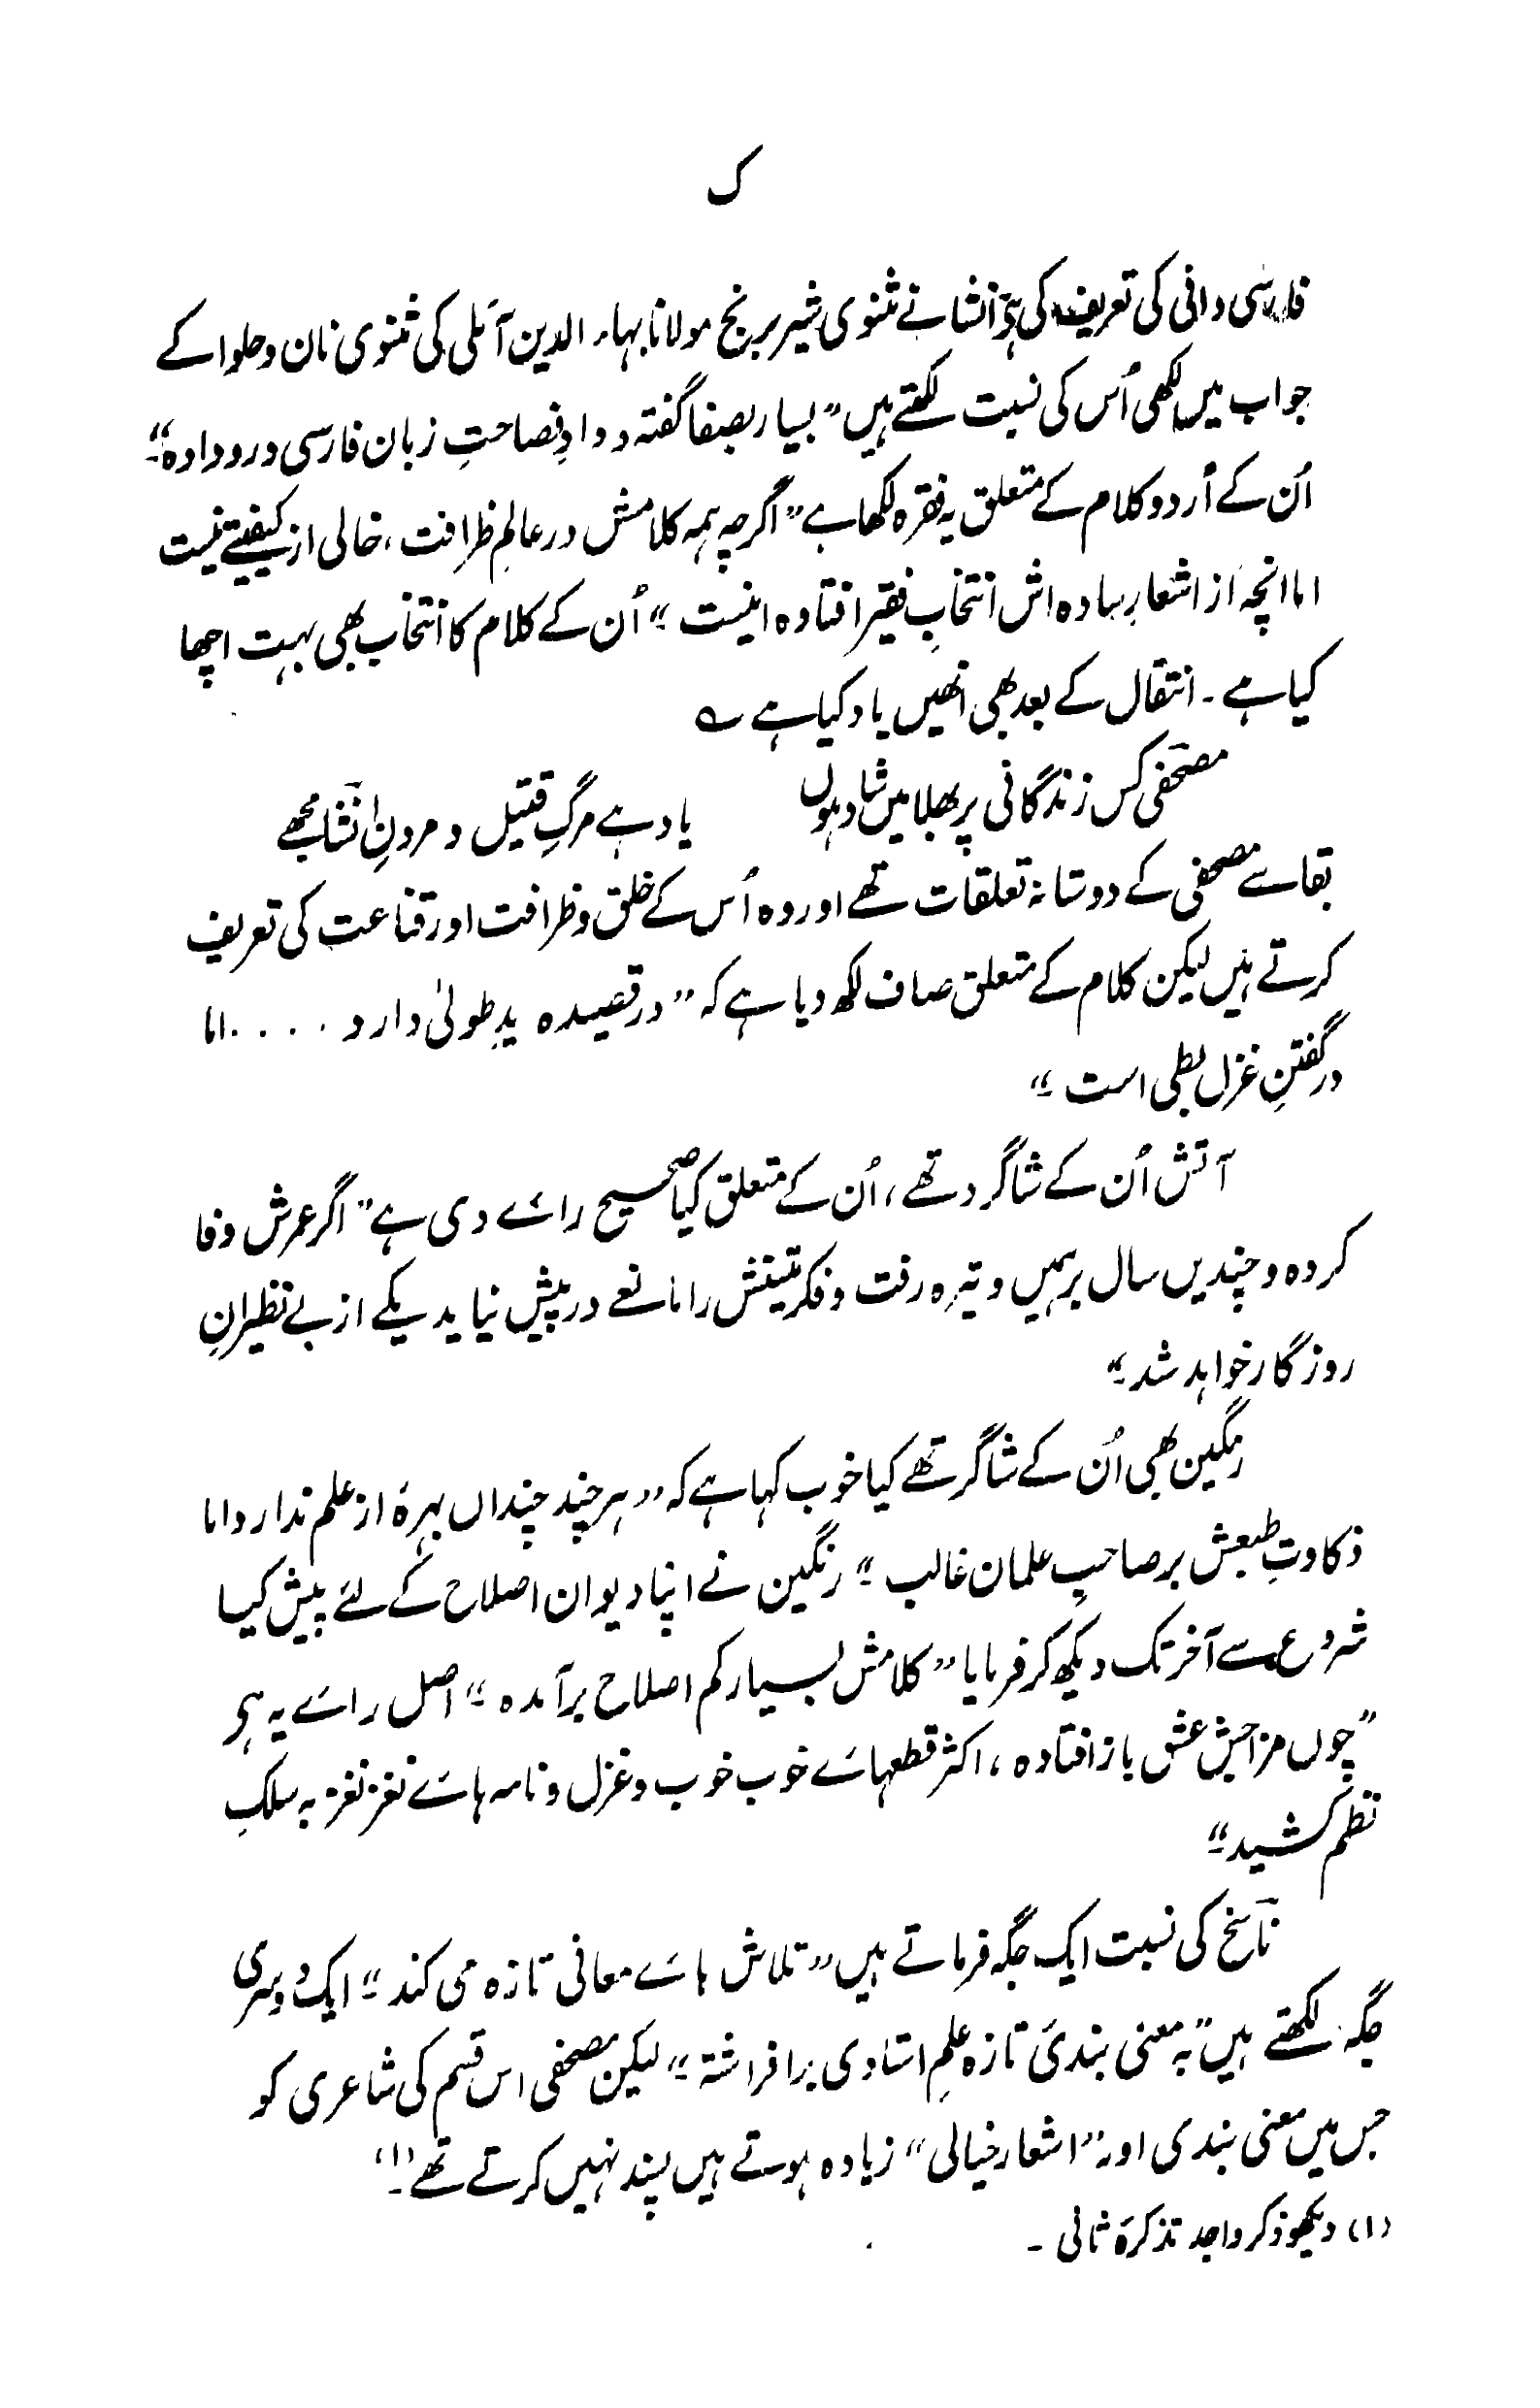 ک
فارسی دانی کی تعریف کی ہی انشا نے مثنوی شیر برنج مولانا بہاء الدین آملی کی مثنوی نان و حلوا کے
جواب میں لکھی اُس کی نسبت لکھتے ہیں ”بسیار بصفا گفتہ و دادِ فصاحتِ زبان فارسی درو دادہ“۔
اُن کے اُردو کلام کے متعلق یہ فقرہ لکھا ہے ”اگرچہ ہمہ کلامش در عالمِ ظرافت، خالی از کیفیتے نیست
اما انچہ از اشعارِ سادہ اش انتخابِ فقیر افتادہ اینست“۔ اُن کے کلام کا انتخاب بھی بہت اچھا
کیا ہے ۔ انتقال کے بعد بھی انھیں یاد کیا ہے ؎
مصحفی کس زندگانی پر بھلا میں شاد ہوں یاد ہے مرگِ قتیل و مردنِ انشا مجھے
بقا سے مصحفی کے دوستانہ تعلقات تھے اور وہ اُس کے خلق و ظرافت اور قناعت کی تعریف
کرتے ہیں لیکن کلام کے متعلق صاف لکھ دیا ہے کہ ”در قصیدہ یدِ طولیٰ دارد ۰۰۰۰ اما
در گفتنِ غزل بطی است“۔
آتش اُن کے شاگرد تھے، اُن کے متعلق کیا صحیح رائے دی ہے ”اگر عمرش وفا
کردہ و چندیں سال برہمیں وتیرہ رفت و فکر متینش را مانعے درپیش نیاید یکے از بے نظیرانِ
روزگار خواہد شد“۔
رنگین بھی اُن کے شاگر تھے کیا خوب کہا ہے کہ ”ہر چند چنداں بہرۂ از علم ندارد اما
ذکاوتِ طبعش بر صاحبِ علمان غالب“۔ رنگین نے اپنا دیوان اصلاح کے لئے پیش کیا
شروع سے آخر تک دیکھ کر فرمایا ”کلامش بسیار کم اصلاح برآمدہ“۔ اصل رائے یہ ہی
”چوں مزاجش عشق باز افتادہ، اکثر قطعہائے خوب خوب و غزل و نامہ ہائے نغز نغز بہ سلکِ
نظم کشید“۔
ناسخ کی نسبت ایک جگہ فرماتے ہیں ”تلاش ہائے معانی تازہ می کند“۔ ایک دوسری
جگہ لکھتے ہیں ”بہ معنی بندیٔ تازہ علمِ استادی برافراشتہ“۔ لیکن مصحفی اس قسم کی شاعری کو
جس میں معنی بندی اور ”اشعار خیالی“ زیادہ ہوتے ہیں پسند نہیں کرتے تھے۔(۱)
(۱) دیکھو ذکر واجد تذکرۂ ثانی ۔